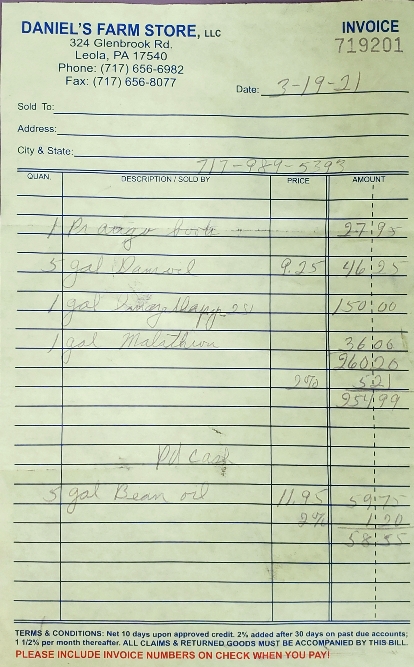 DANIEL'S FARM STORE, LLC
INVOICE
324 Glenbrook Rd.
719201
Leola, PA 17540
Phone: (717) 656-6982
Fax: (717) 656-8077
Date: 3-19-21
Sold To:
Address:
City & State:
717-989-5293
QUAN. DESCRIPTION / SOLD BY PRICE AMOUNT
1 Pr boots 27.95
5 gal 9.25 46.25
1 gal 150.00
1 gal Malithion 36.00
260.20
2% 5.21
254.99
Pd cash
5 gal Bean oil 11.95 59.75
2% 1.20
58.55
TERMS & CONDITIONS: Net 10 days upon approved credit. 2% added after 30 days on past due accounts;
1 1/2% per month thereafter. ALL CLAIMS & RETURNED GOODS MUST BE ACCOMPANIED BY THIS BILL.
PLEASE INCLUDE INVOICE NUMBERS ON CHECK WHEN YOU PAY!